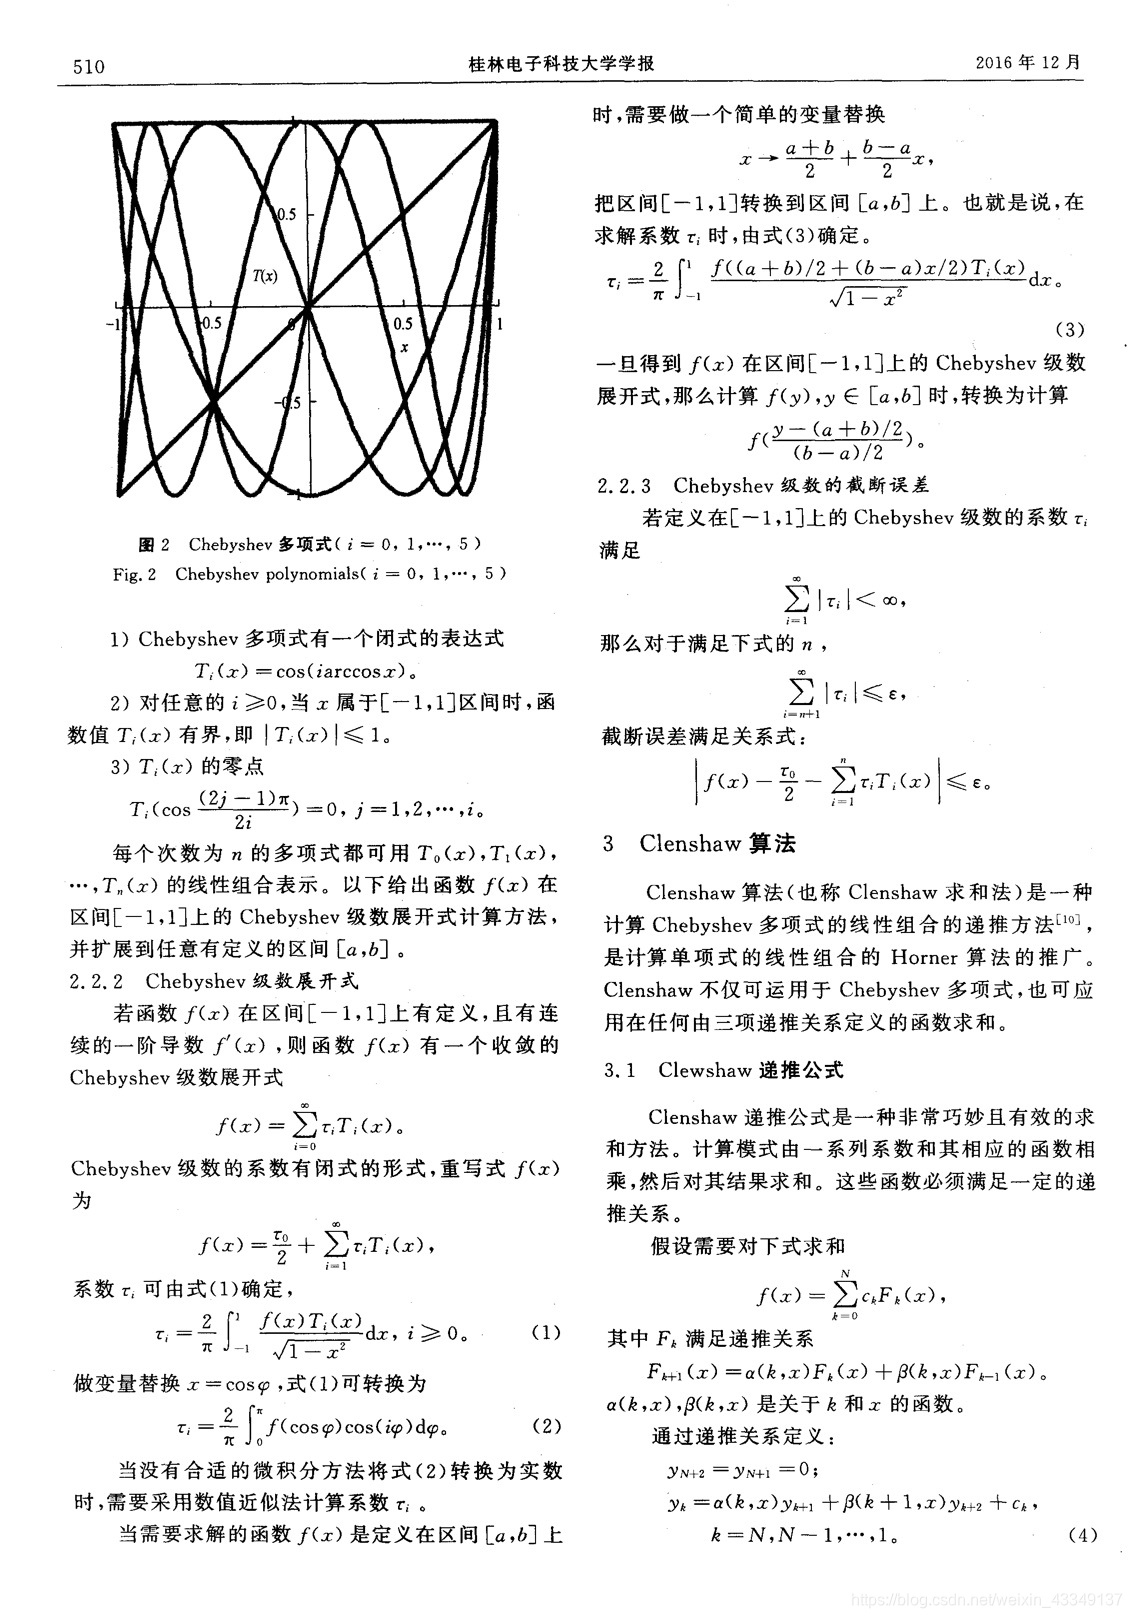 510
桂林电子科技大学学报
2016 年 12 月
0.5
T(x)
-1
-0.5
0
0.5
1
x
-0.5
-1
图 2 Chebyshev 多项式( i = 0, 1,…, 5 )
Fig. 2 Chebyshev polynomials( i = 0, 1,…, 5 )
1) Chebyshev 多项式有一个闭式的表达式
T_i(x) = cos(i arccos x)。
2) 对任意的 i ≥ 0,当 x 属于[-1,1]区间时,函
数值 T_i(x) 有界,即 |T_i(x)| ≤ 1。
3) T_i(x) 的零点
T_i(cos (2j-1)π/2i) = 0, j = 1,2,…,i。
每个次数为 n 的多项式都可用 T_0(x),T_1(x),
…,T_n(x) 的线性组合表示。以下给出函数 f(x) 在
区间[-1,1]上的 Chebyshev 级数展开式计算方法,
并扩展到任意有定义的区间 [a,b] 。
2.2.2 Chebyshev 级数展开式
若函数 f(x) 在区间[-1,1]上有定义,且有连
续的一阶导数 f′(x) ,则函数 f(x) 有一个收敛的
Chebyshev 级数展开式
f(x) = ∑_{i=0}^{∞} τ_i T_i(x)。
Chebyshev 级数的系数有闭式的形式,重写式 f(x)
为
f(x) = τ_0/2 + ∑_{i=1}^{∞} τ_i T_i(x),
系数 τ_i 可由式(1)确定,
τ_i = 2/π ∫_{-1}^{1} f(x)T_i(x)/√(1-x²) dx, i ≥ 0。 (1)
做变量替换 x = cosφ ,式(1)可转换为
τ_i = 2/π ∫_0^π f(cosφ)cos(iφ)dφ。 (2)
当没有合适的微积分方法将式(2)转换为实数
时,需要采用数值近似法计算系数 τ_i 。
当需要求解的函数 f(x) 是定义在区间 [a,b] 上
时,需要做一个简单的变量替换
x → (a+b)/2 + (b-a)/2 x,
把区间[-1,1]转换到区间 [a,b] 上。也就是说,在
求解系数 τ_i 时,由式(3)确定。
τ_i = 2/π ∫_{-1}^{1} f((a+b)/2+(b-a)x/2)T_i(x)/√(1-x²) dx。
(3)
一旦得到 f(x) 在区间[-1,1]上的 Chebyshev 级数
展开式,那么计算 f(y),y ∈ [a,b] 时,转换为计算
f((y-(a+b)/2)/((b-a)/2))。
2.2.3 Chebyshev 级数的截断误差
若定义在[-1,1]上的 Chebyshev 级数的系数 τ_i
满足
∑_{i=1}^{∞} |τ_i| < ∞,
那么对于满足下式的 n ,
∑_{i=n+1}^{∞} |τ_i| ≤ ε,
截断误差满足关系式:
|f(x) - τ_0/2 - ∑_{i=1}^{n} τ_i T_i(x)| ≤ ε。
3 Clenshaw 算法
Clenshaw 算法(也称 Clenshaw 求和法)是一种
计算 Chebyshev 多项式的线性组合的递推方法[10],
是计算单项式的线性组合的 Horner 算法的推广。
Clenshaw 不仅可运用于 Chebyshev 多项式,也可应
用在任何由三项递推关系定义的函数求和。
3.1 Clewshaw 递推公式
Clenshaw 递推公式是一种非常巧妙且有效的求
和方法。计算模式由一系列系数和其相应的函数相
乘,然后对其结果求和。这些函数必须满足一定的递
推关系。
假设需要对下式求和
f(x) = ∑_{k=0}^{N} c_k F_k(x),
其中 F_k 满足递推关系
F_{k+1}(x) = α(k,x)F_k(x) + β(k,x)F_{k-1}(x)。
α(k,x),β(k,x) 是关于 k 和 x 的函数。
通过递推关系定义:
y_{N+2} = y_{N+1} = 0;
y_k = α(k,x)y_{k+1} + β(k+1,x)y_{k+2} + c_k,
k = N,N-1,…,1。 (4)
https://blog.csdn.net/weixin_43349137